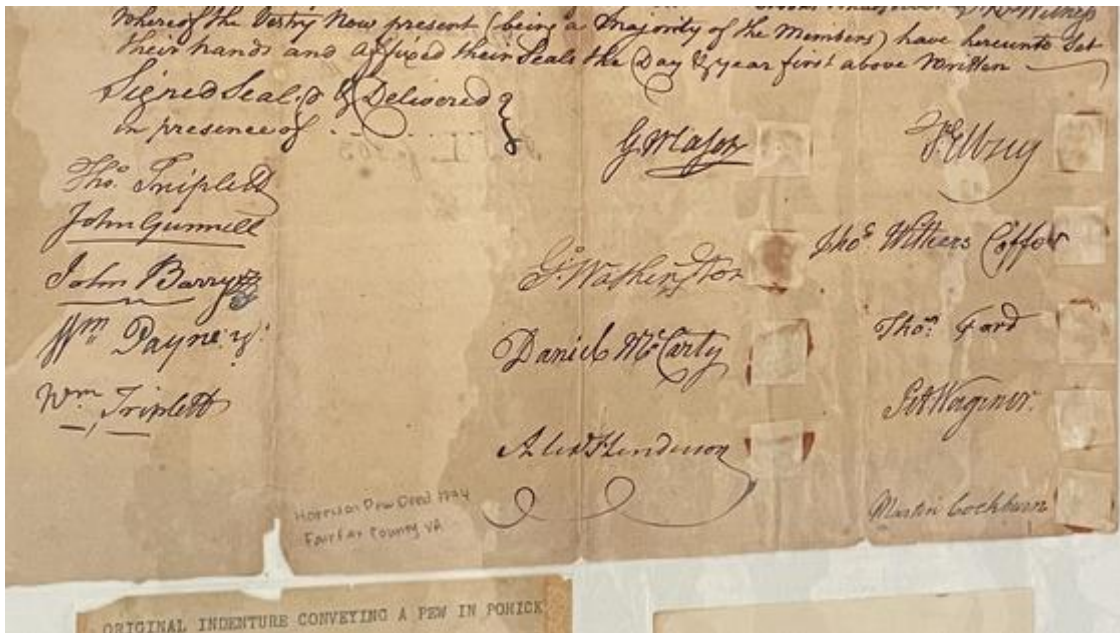 Witness
whereof the Vestry Now present (being a Majority of the Members) have hereunto Set
their hands and affixed their Seals the Day & year first above Written
Signed Seal'd & Delivered
in presence of
Tho.s Triplett
John Gunnell
John Barry
Wm Payne
Wm Triplett
G Mason
G.o Washington
Daniel McCarty
Alexr Henderson
Thos Withers Coffer
Thos. Ford
Pet Wagener
Martin Cockburn
Harrison Pew Deed 1774
Fairfax County VA
ORIGINAL INDENTURE CONVEYING A PEW IN POHICK